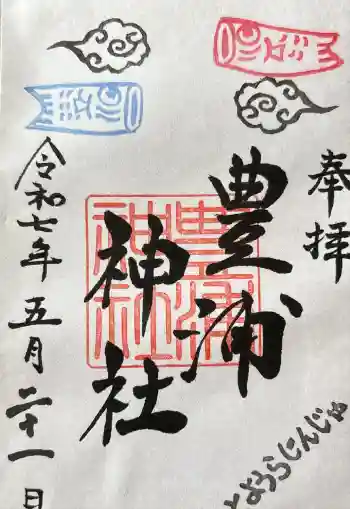 奉拝
豊浦
神社
豊浦
神社
令和七年五月二十一日
とようらじんじゃ